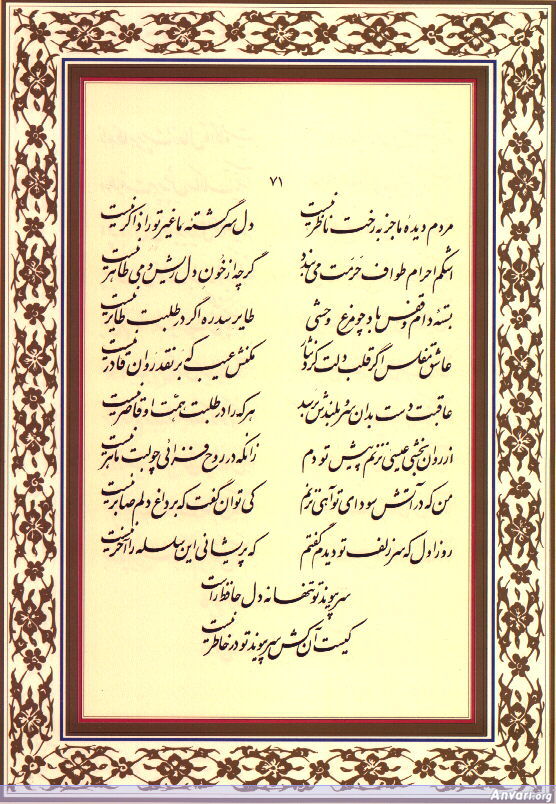 ۷۱
مردم دیده ما جز به رخت ناظر نیست دل سرگشته ما غیر تو را ذاکر نیست
اشکم احرام طواف حرمت می‌بندد گرچه از خون دل ریش دمی طاهر نیست
بسته دام و قفس باد چو مرغ وحشی طایر سدره اگر در طلبت طایر نیست
عاشق مفلس اگر قلب دلت کرد نثار مکنش عیب که بر نقد روان قادر نیست
عاقبت دست بدان سرو بلندش برسد هر که را در طلبت همت او قاصر نیست
از روان بخشی عیسی نزنم پیش تو دم زانکه در روح فزائی چو لبت ماهر نیست
من که در آتش سودای تو آهی نزنم کی توان گفت که بر داغ دلم صابر نیست
روز اول که سر زلف تو دیدم گفتم که پریشانی این سلسله را آخر نیست
سر پیوند تو تنها نه دل حافظ راست
کیست آن کش سر پیوند تو در خاطر نیست
Anvari.org